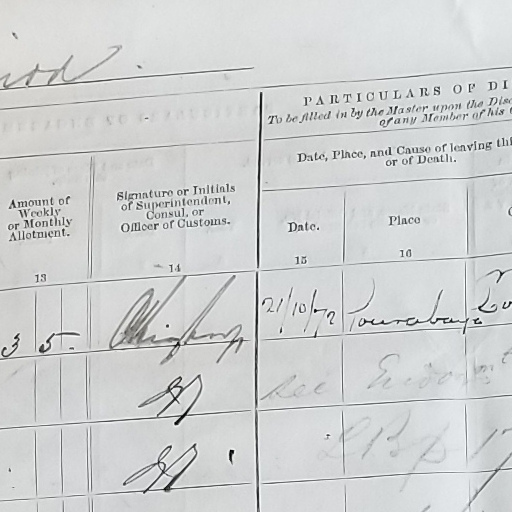 PARTICULARS OF DI
To be filled in by the Master upon the Disc
of any Member of his
Date, Place, and Cause of leaving thi
or of Death.
Amount of
Weekly
or Monthly
Allotment.
Signature or Initials
of Superintendent,
Consul, or
Officer of Customs.
Date.
Place
13
14
15
16
3 5 - 21/10/72 Sourabaya
see